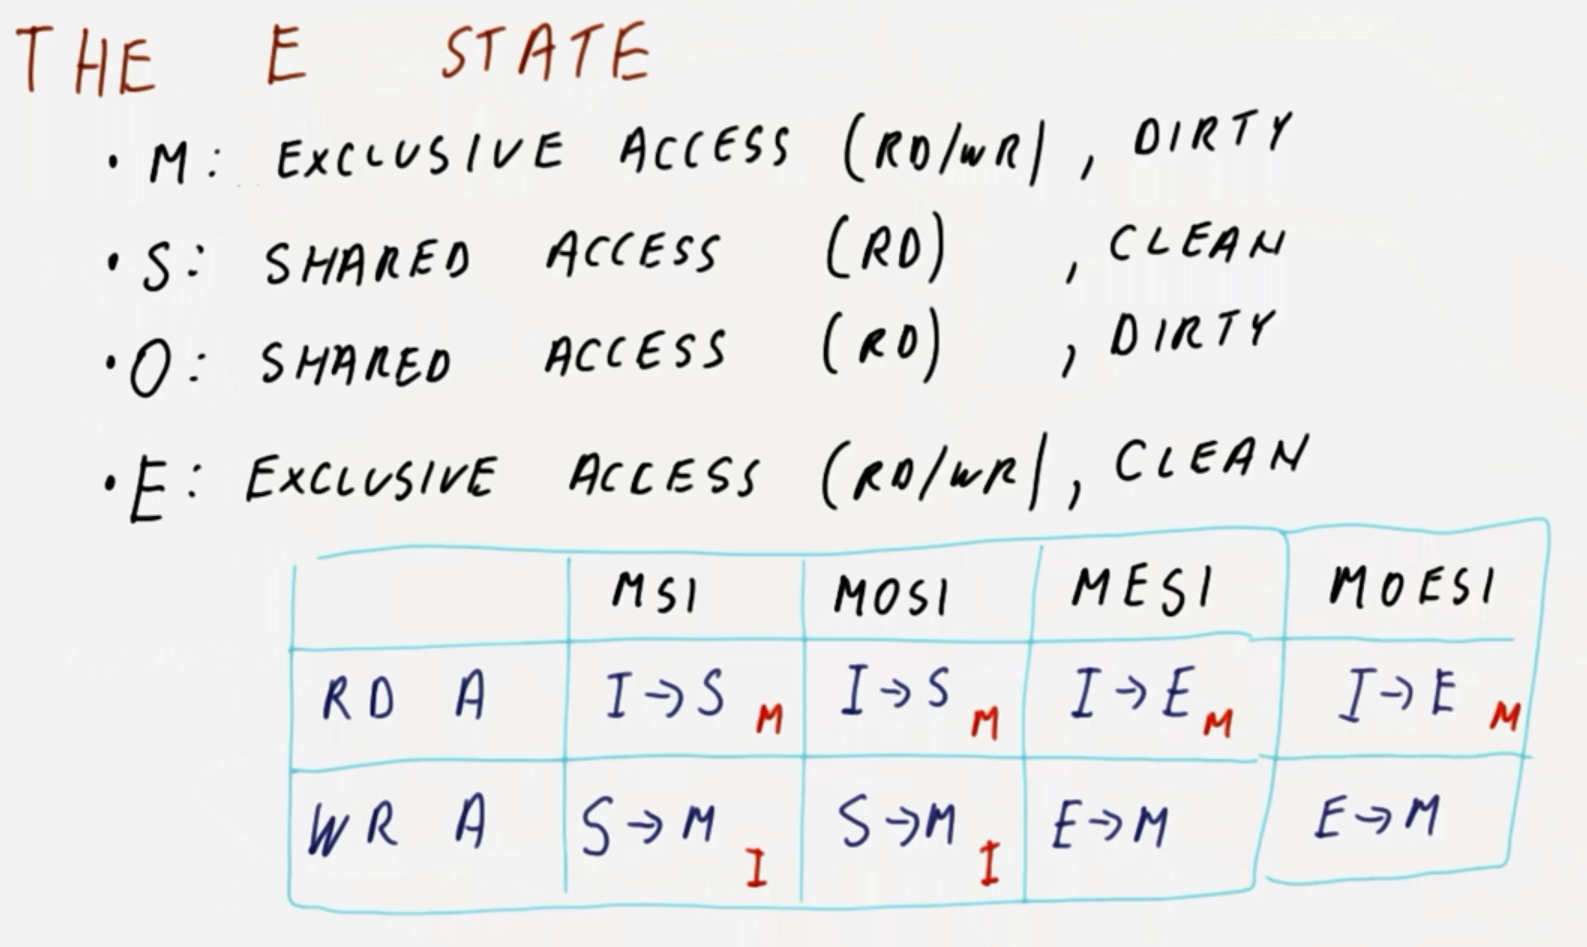 THE E STATE
• M: EXCLUSIVE ACCESS (RD/WR), DIRTY
• S: SHARED ACCESS (RD) , CLEAN
• O: SHARED ACCESS (RD) , DIRTY
• E: EXCLUSIVE ACCESS (RD/WR), CLEAN
MSI MOSI MESI MOESI
RD A I→S M I→S M I→E M I→E M
WR A S→M I S→M I E→M E→M